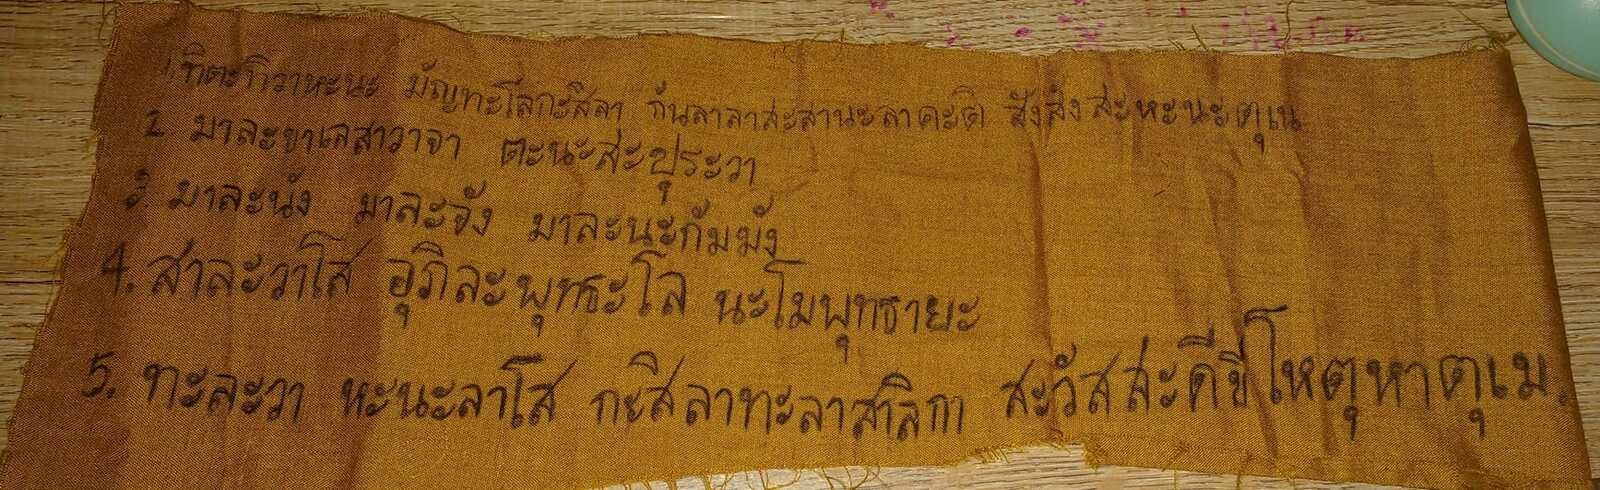 1. ทิตะกิวาหะนะ มัญทะโสกะสิลา กันลาลาสะสานะลาคะติ สังสิงสะหะนะตุเน
2. มาละขาเลสาวาจา ตะนะสะปุระวา
3. มาละนัง มาละจัง มาละนะกัมมัง
4. สาละวาโส อุภิละพุทธะโล นะโมพุทธายะ
5. ทะละวา หะนะลาโส กะสิลาทะลาสาลิกา สะวัสสะคีขีโหตุหาตุเม.